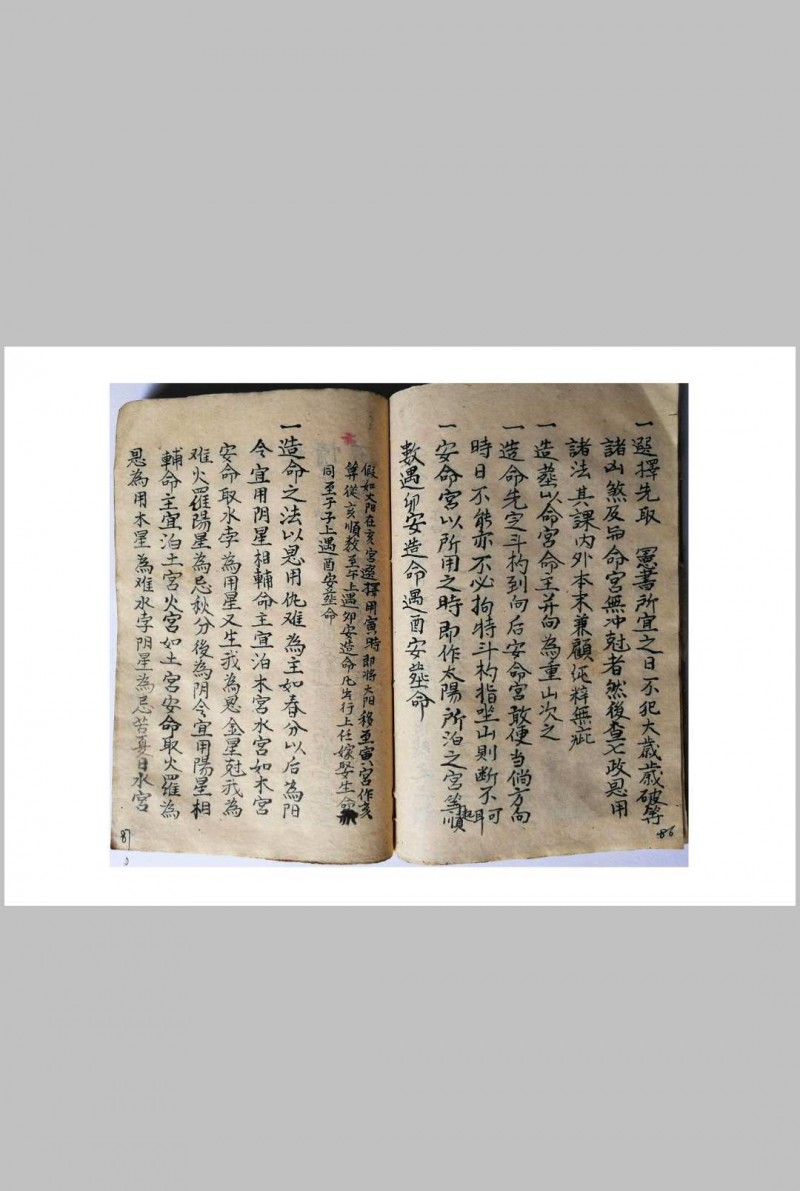 一選擇先取 憲書所宜之日不犯大歲歲破等
諸凶煞及與命宮無冲尅者然後查七政恩用
諸法其課內外本末兼顧純粹無疵
一造葬以命宮命主并向為重山次之
一造命先定斗杓到向后安命宮敢便当倘方向
時日不能亦不必拘特斗杓指坐山則断不可耳
一安命宮以所用之時即作太陽所泊之宮等起順
數遇卯安造命遇酉安葬命
86
假如太阳在亥宮選擇用寅時即將太阳移至寅宮作亥
算從亥順数至午上遇卯安造命凡出行上任嫁娶生命
同至子子上遇酉安葬命
一造命之法以恩用仇难為主如春分以后為阳
令宜用阴星相輔命主宜泊木宮水宮如木宮
安命取水孛為用星又生我為恩金星尅我為
难火羅陽星為忌秋分後為阴令宜用陽星相
輔命主宜泊土宮火宮如土宮安命取火羅為
恩為用木星為难水孛阴星為忌苦夏日水宮
87